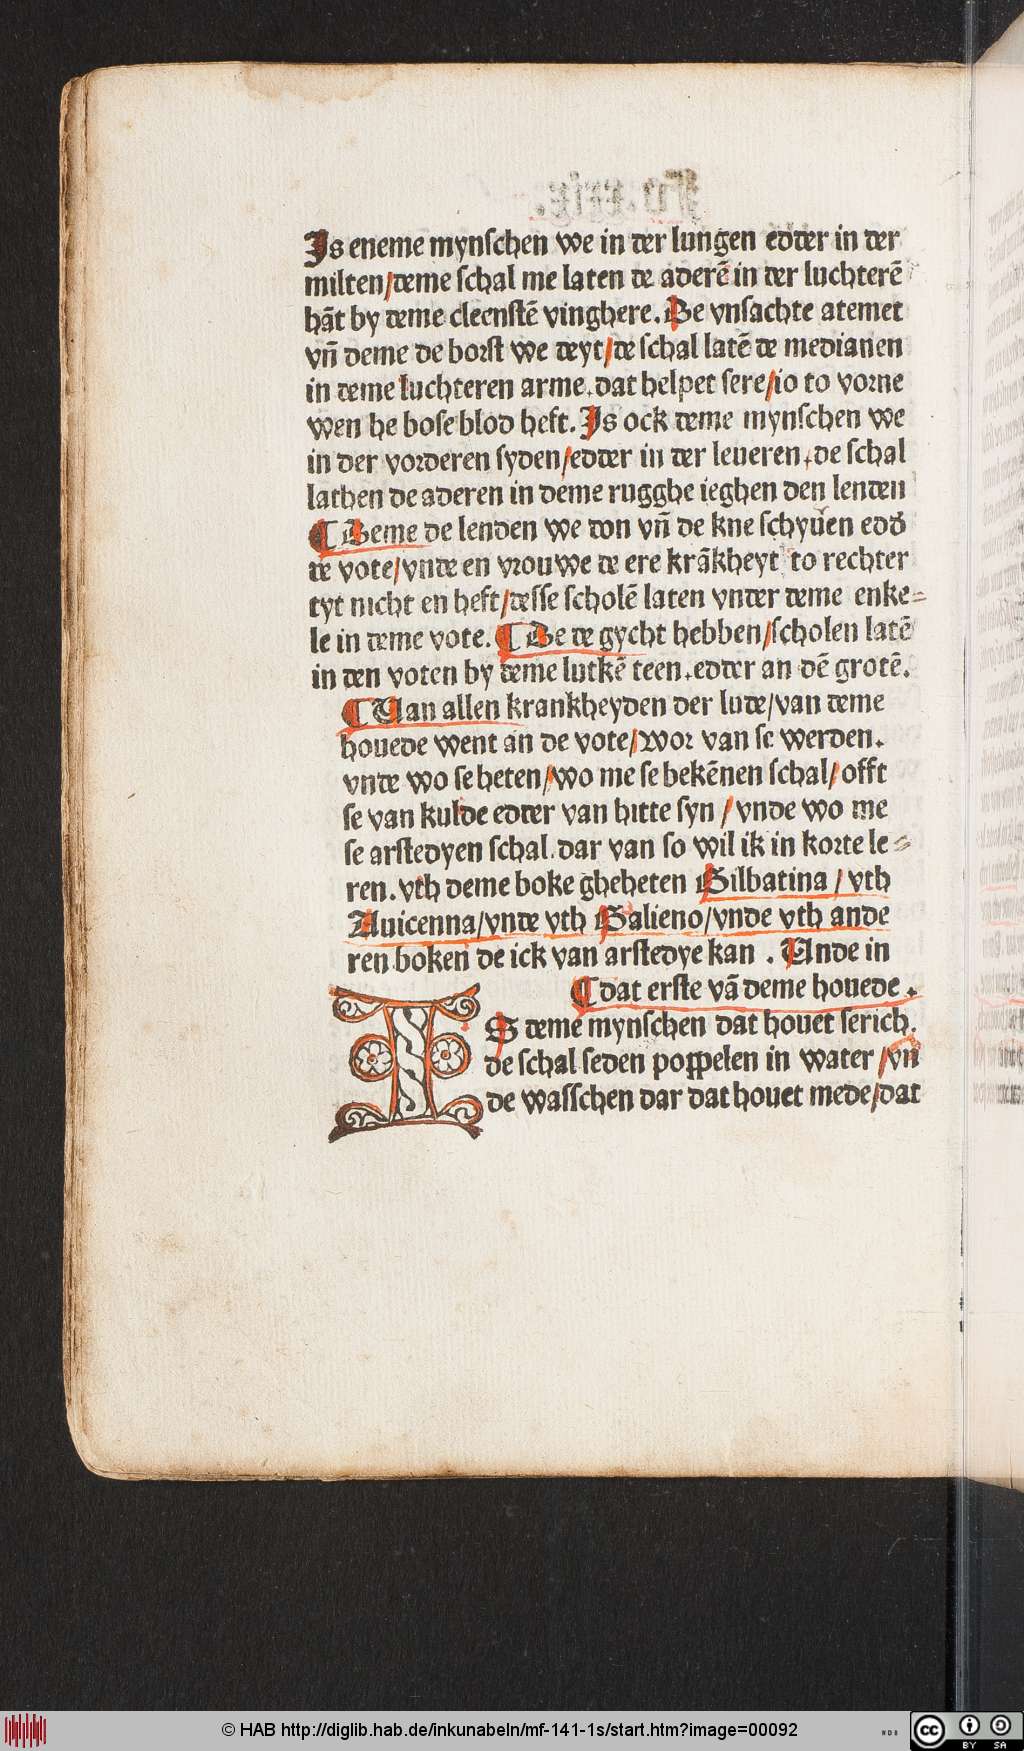 Js eneme mynſchen we in der lungen edder in der
milten/deme ſchal me laten de aderē in der luchterē
hāt by deme cleenſtē vinghere. De vnſachte atemet
vn̄ deme de borſt we deyt/de ſchal latē de medianen
in deme luchteren arme. dat helpet ſere/io to vorne
wen he boſe blod heft. Js ock deme mynſchen we
in der vorderen ſyden/edder in der leueren. de ſchal
lathen de aderen in deme rugghe ieghen den lenden
¶ Deme de lenden we don vn̄ de kne ſchyuen edď
de vote/vnde en vrouwe de ere krākheyt to rechter
tyt nicht en heft/deſſe ſcholē laten vnder deme enke⸗
le in deme vote. ¶ De de gycht hebben/ſcholen latē
in den voten by deme lutkē teen. edder an dē grotē.
¶ Uan allen krankheyden der lude/van deme
houede went an de vote/wor van ſe werden.
vnde wo ſe heten/wo me ſe bekēnen ſchal/offt
ſe van kulde edder van hitte ſyn/vnde wo me
ſe arſtedyen ſchal. dar van ſo wil ik in korte le⸗
ren. vth deme boke gheheten Gilbatina/vth
Auicenna/vnde vth Galieno/vnde vth ande
ren boken de ick van arſtedye kan. Unde in
¶ dat erſte vā deme houede.
IS deme mynſchen dat houet ſerich.
de ſchal ſeden poppelen in water/vn̄
de waſſchen dar dat houet mede/dat
© HAB http://diglib.hab.de/inkunabeln/mf-141-1s/start.htm?image=00092
WDB
cc BY SA